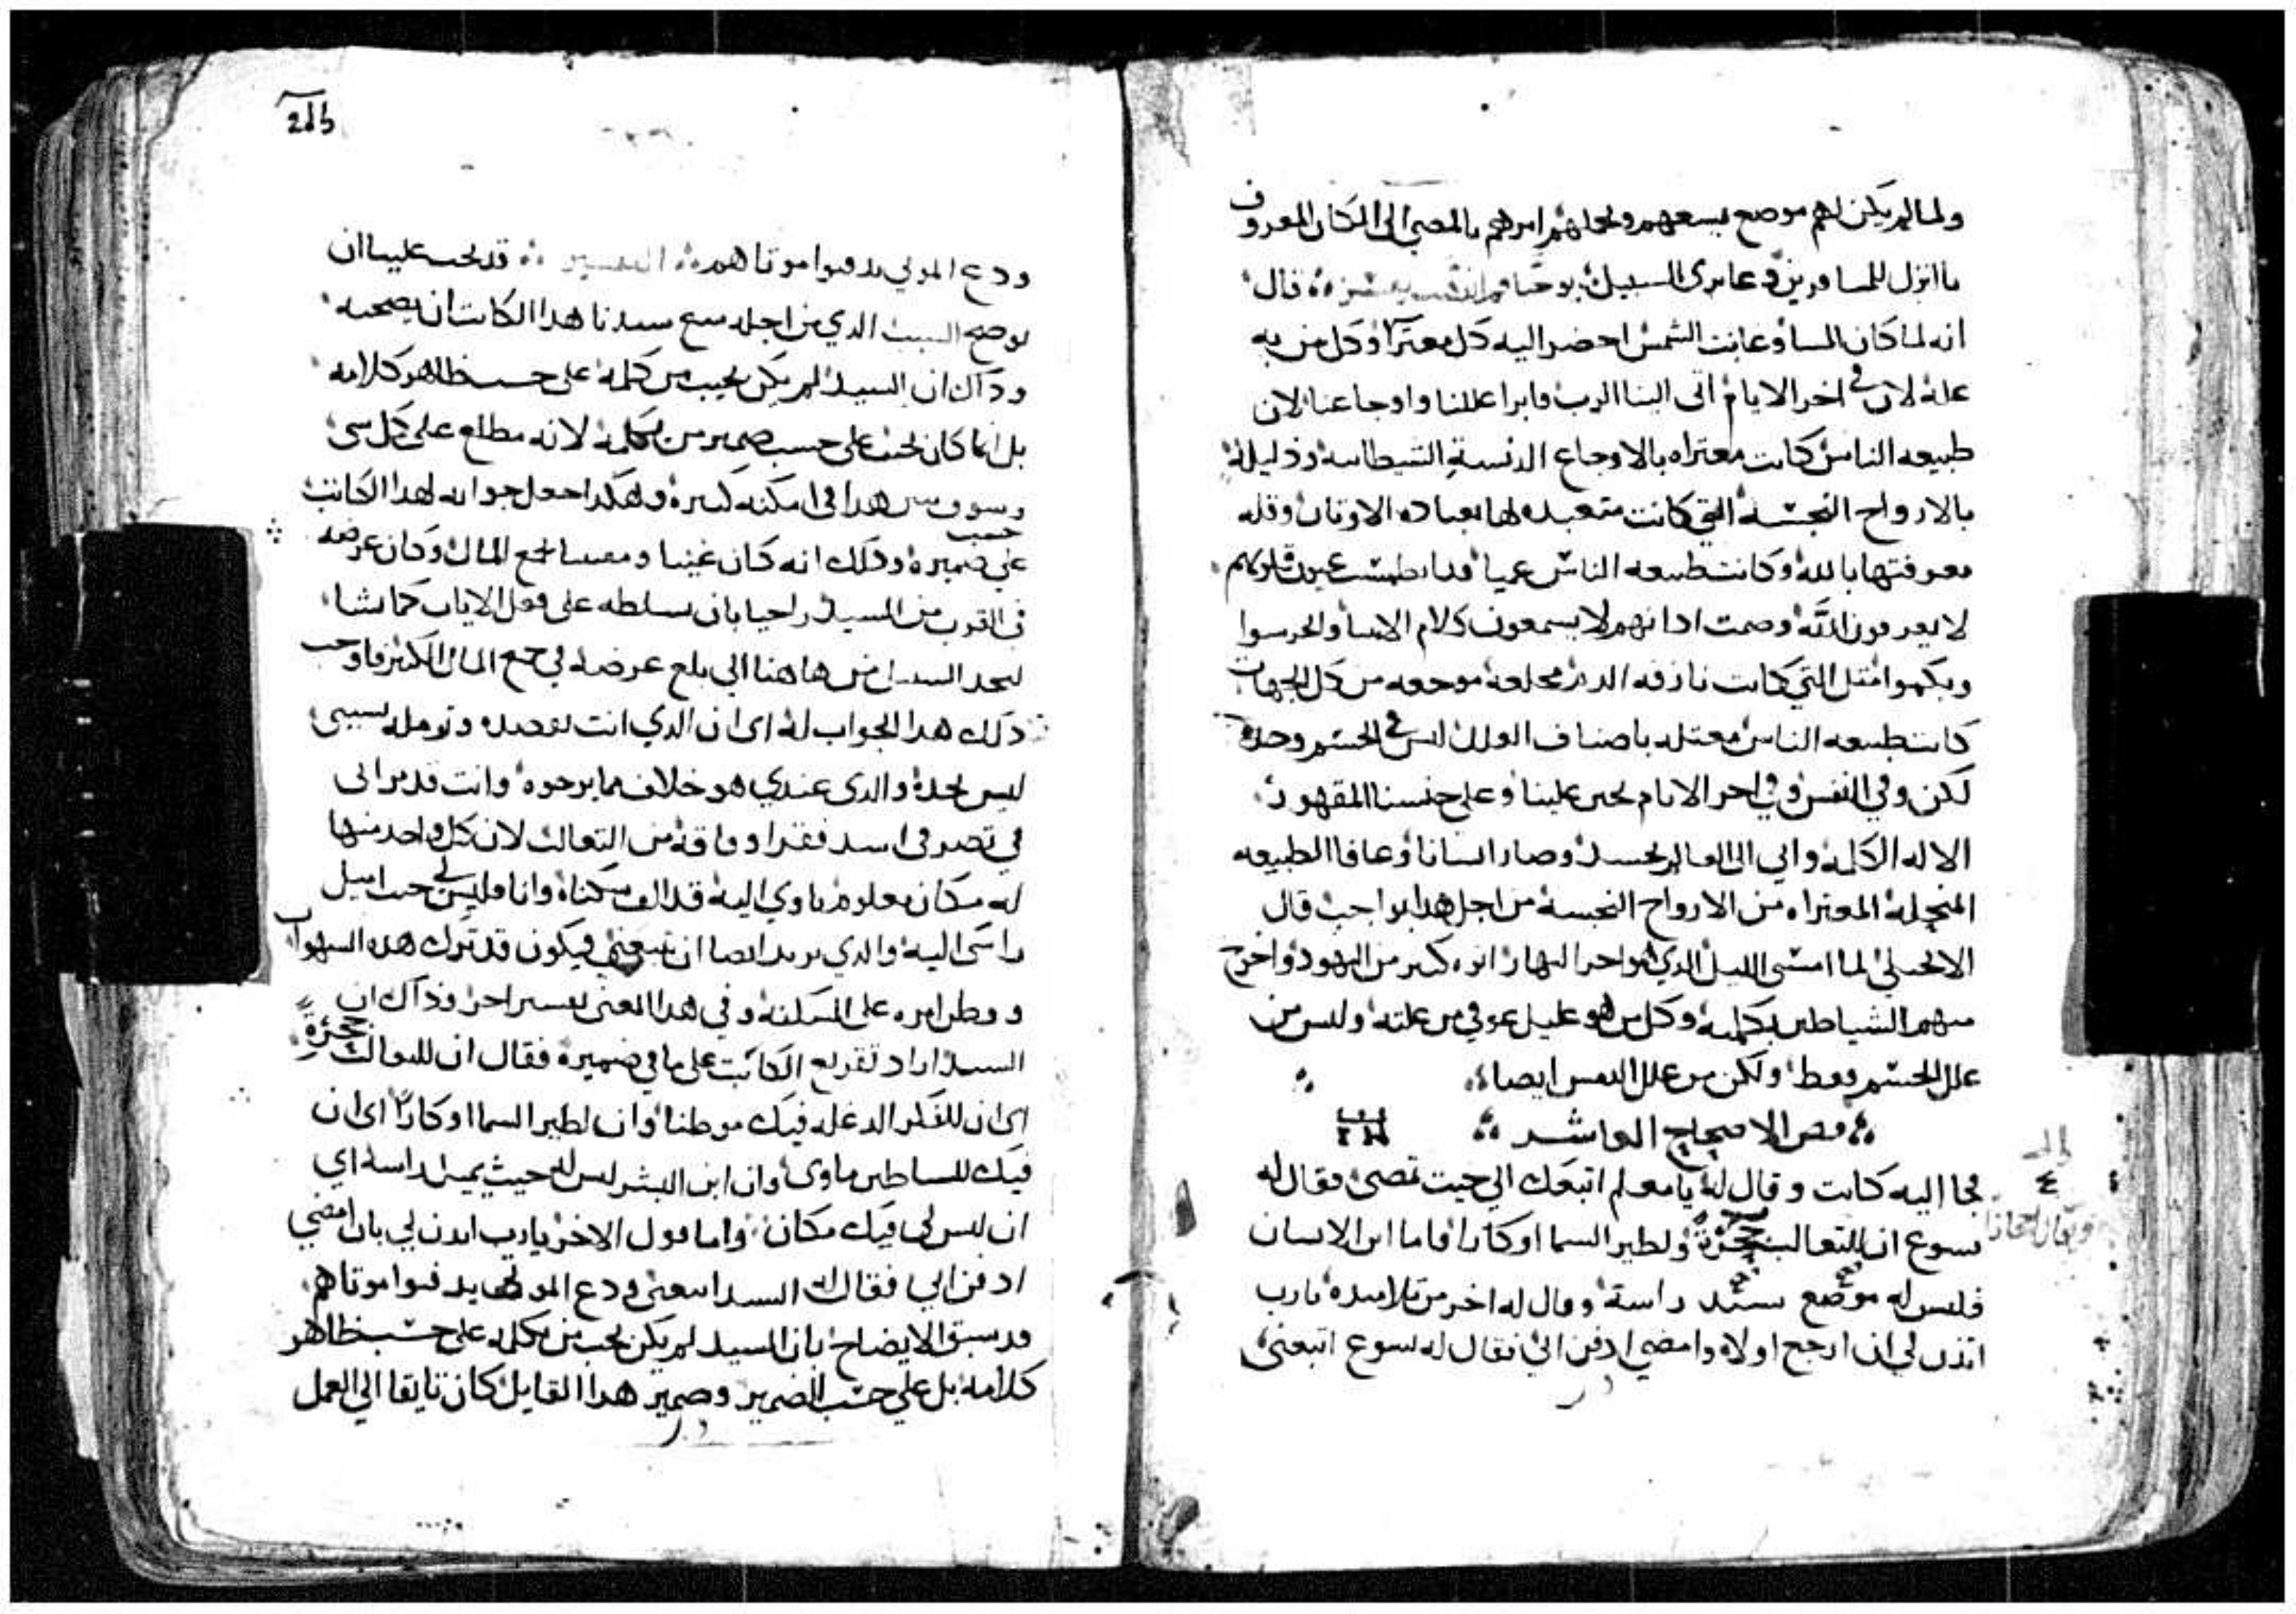 ولما لم يكن لهم موضع يسعهم امرهم بالمضي الى المكان المعروف
ما انزل للمسافرين وعابرى السبيل قال
انه لما كان المسا وغابت الشمس احضر اليه كل معترا وكل من به
علة لان في اخر الايام اتى الينا الرب فابرا عللنا واوجاعنا لان
طبيعه الناس كانت معتراه بالاوجاع الدنسة الشيطانيه وذليلة
بالارواح النجسة التي كانت متعبده لها بعباده الاوثان وقله
معرفتها بالله وكانت طبيعه الناس عميا قد انطمست عيون قلوبهم
لا يعرفون الله وصمت ادانهم لا يسمعون كلام الانبيا والخرسوا
وبكموا مثل التي كانت نازفه الدم موجعه من كل الجهات
كانت طبيعه الناس معتله باصناف العلل ليس في الجسم وحده
لكن وفي النفس وفي اخر الايام تحنن علينا وعلى جنسنا المقهور
الاله الكلمة واتى الى العالم بجسد وصار انسانا وعافا الطبيعه
المعتراه من الارواح النجسة من اجل هدا بواجب قال
الانجيلي لما امسى الليل الدي هو اخر النهار اتوه كثير من اليهود واخرج
منهم الشياطين بكلمة وكل من هو عليل عوفي من علته وليس من
علل الجسم فقط ولكن من علل النفس ايضا
فص الاصحاح العاشر
فجا اليه كاتب وقال له يا معلم اتبعك الي حيث تمضى فقال له
يسوع ان للتعالب جحزة ولطير السما اوكارا فاما ابن الانسان
فليس له موضع يسند راسة وقال له اخر من تلاميده يارب
ائذن لي ان ارجع اولا وامضي ادفن ابي فقال له يسوع اتبعنى
ودع الموتي يدفنوا موتاهم التفسير قد يجب علينا ان
نوضح السبب الدي من اجله منع سيدنا هدا الكاتب ان يصحبه
ودلك ان السيد لم يكن يجيب من كلمه على حسب ظاهر كلامه
بل انما كان يجيب على حسب ضمير من يكلمة لانه مطلع على كل شى
وسوف نبين هدا في امكنه كثيرة وهكدا جعل جوابه لهدا الكاتب
على حسب ضميرة ودلك انه كان غنيا لجمع المال وكان غرضه
في القرب من السيد راجيا بان يسلطه على فعل الايات كما يشا
ليجد السبيل من هاهنا الي بلغ غرضه في جمع المال الكثير فاوجب
دلك هدا الجواب له اى ان الدي انت تقصده وتومله بسببى
ليس تجدة والدى عندي هو خلاف ما ترجوه وانت قد ترانى
في تصرفى اشد فقرا وفاقة من التعالب لان كل واحد منها
له مكان معلوم ياوي اليه قد الف سكناه وانا فليس لي حيث اميل
راسى الية والدي يريد ايضا ان يتبعني فيكون قد ترك هده الشهوات
ووطن امره على المسكنة وفي هدا المعنى تفسير اخر وذاك ان
السيد اراد تقريع الكاتب على ما في ضميرة فقال ان للتعالب جحزة
اى ان للفكر الدغله فيك موطنا وان لطير السما اوكارا اى ان
فيك للشياطين ماوى وان ابن البشر ليس له حيث يميل راسه اي
ان ليس لي فيك مكان واما قول الاخر يارب ايدن لي بان امضي
ادفن ابي فقال له السيد اتبعنى ودع الموتى يدفنوا موتاهم
قد سبق الايضاح بان السيد لم يكن يجيب من يكلمه على حسب ظاهر
كلامه بل على حسب الضمير وضمير هدا القايل كان تايقا الي العمل